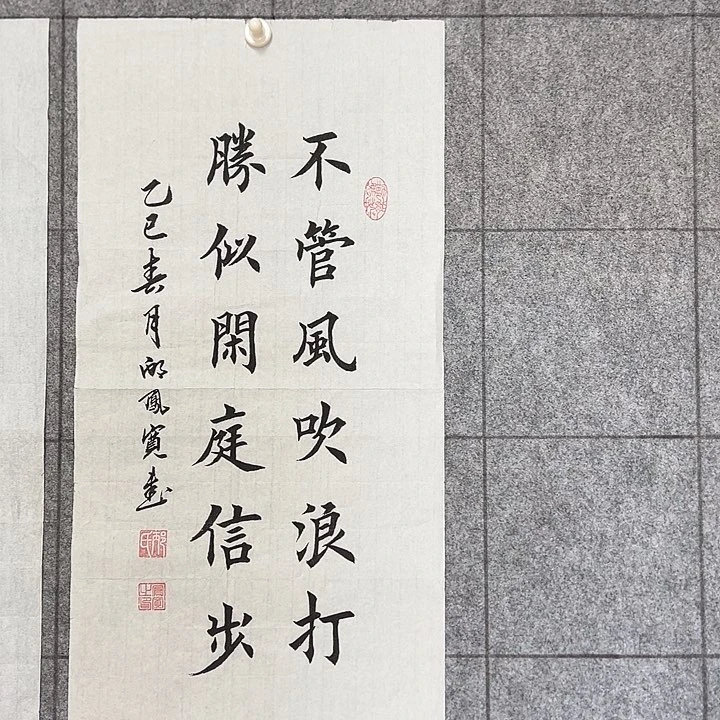 不管風吹浪打
勝似閑庭信步
乙巳春月鳳寬書